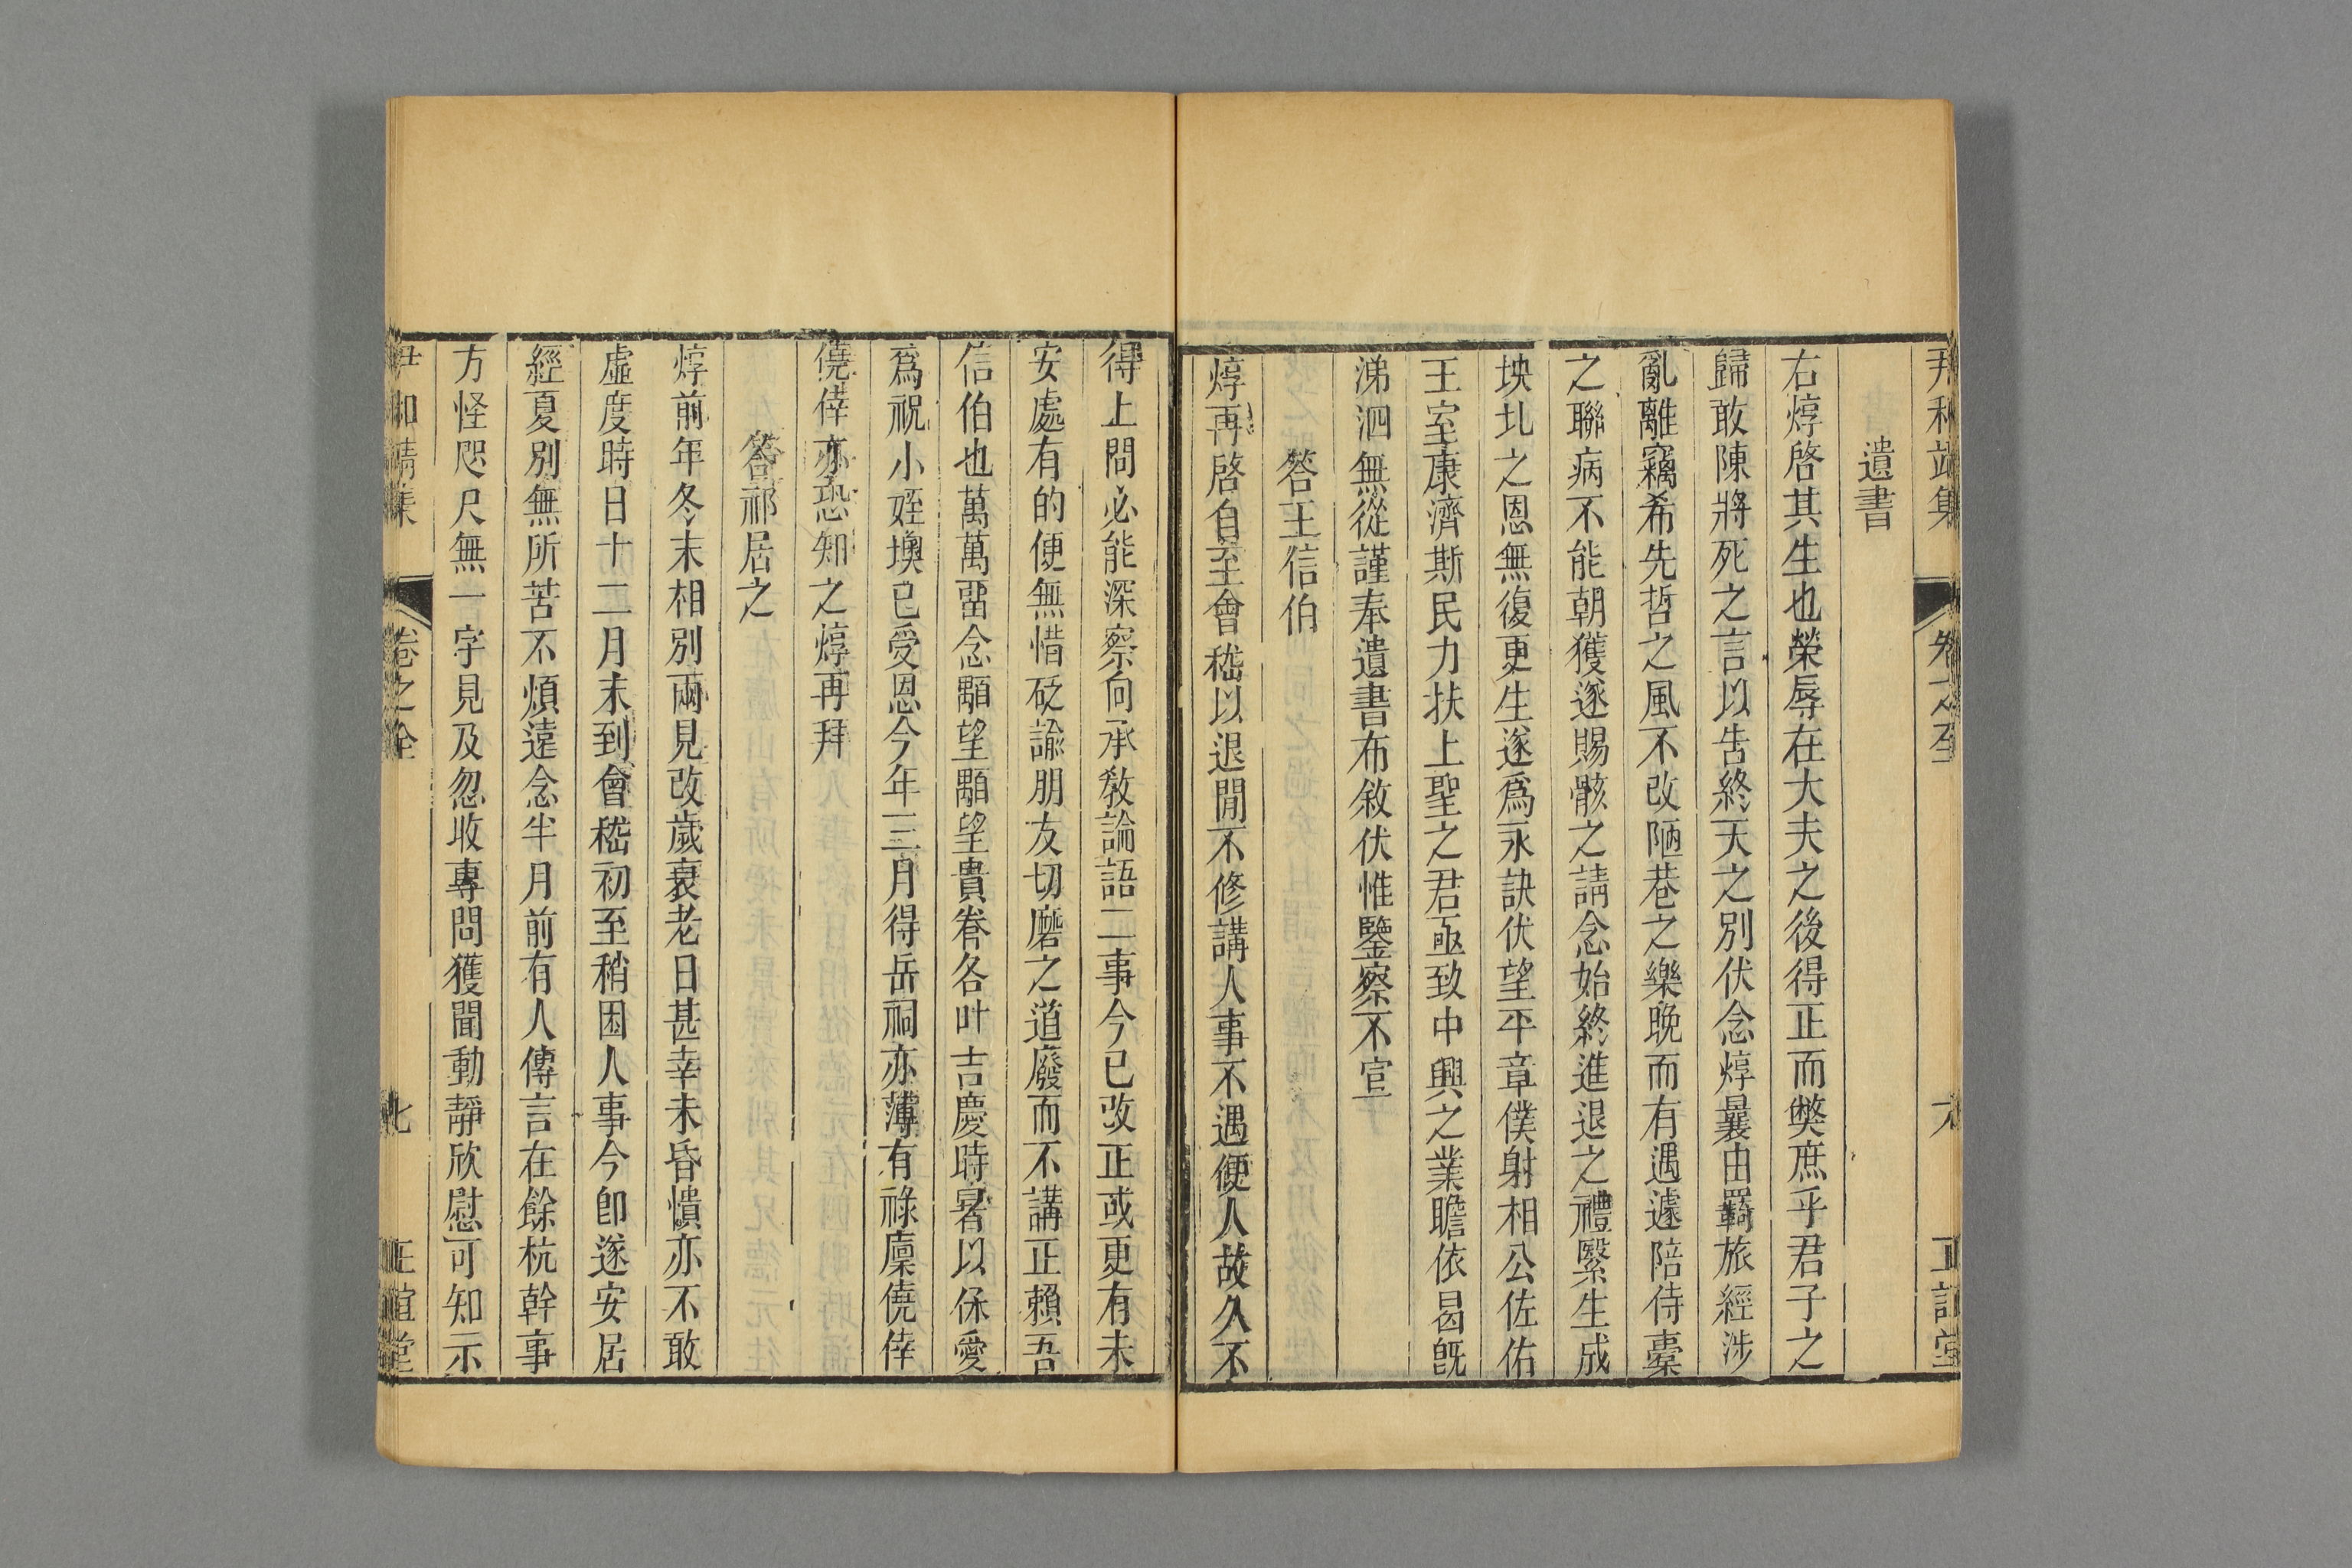 遺書
右焞啓其生也榮辱在大夫之後得正而獘庶乎君子之
歸敢陳將死之言以告終天之別伏念焞曩由羈旅經涉
亂離竊希先哲之風不改陋巷之樂晚而有遇遽陪侍橐
之聯病不能朝獲遂賜骸之請念始終進退之禮緊生成
坱圠之恩無復更生遂爲永訣伏望平章僕射相公佐佑
王室康濟斯民力扶上聖之君亟致中興之業瞻依曷旣
涕泗無從謹奉遺書布敘伏惟鑒察不宣
答王信伯
焞再啓自至會嵇以退閒不修講人事不遇便人故久不
得上問必能深察向承敎論語二事今已改正或更有未
安處有的便無惜砭諭朋友切磨之道廢而不講正賴吾
信伯也萬萬畱念顒望顒望貴眷各叶吉慶時暑以保愛
爲祝小姪墺已受恩今年三月得岳祠亦薄有祿廩僥倖
僥倖亦恐知之焞再拜
答祁居之
焞前年冬末相別兩見改歲衰老日甚幸未昏憒亦不敢
虛度時日十二月末到會嵇初至稍困人事今卽遂安居
經夏別無所苦不煩遠念半月前有人傳言在餘杭幹事
方怪咫尺無一字見及忽收專問獲聞動靜欣慰可知示
尹和靖集 卷之全 七 正誼堂